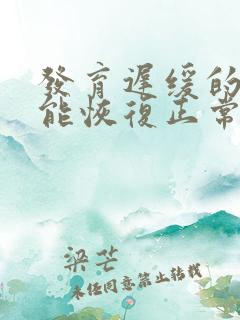 發育遲緩的
能恢復正常
梁芒
未经同意禁止转载